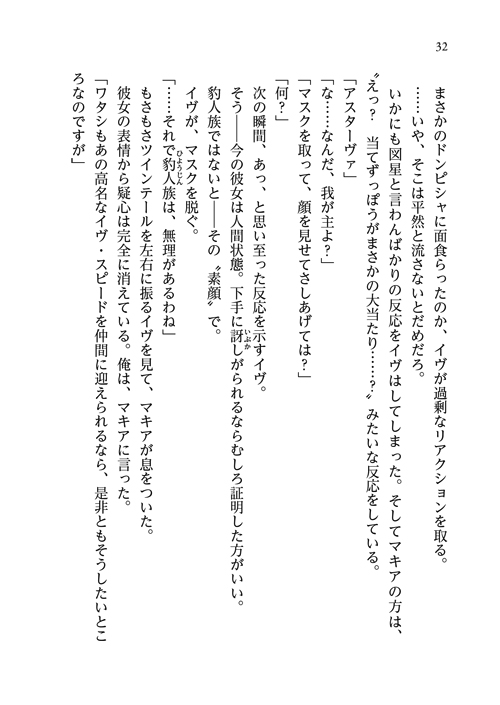 32
まさかのドンピシャに面食らったのか、イヴが過剰なリアクションを取る。
……いや、そこは平然と流さないとだめだろ。
いかにも図星と言わんばかりの反応をイヴはしてしまった。そしてマキアの方は、
〝えっ？　当てずっぽうがまさかの大当たり……？〟みたいな反応をしている。
「アスターヴァ」
「な……なんだ、我が主よ？」
「マスクを取って、顔を見せてさしあげては？」
「何？」
次の瞬間、あっ、と思い至った反応を示すイヴ。
そう――今の彼女は人間状態。下手に訝しがられるならむしろ証明した方がいい。
豹人族ではないと――その〝素顔〟で。
イヴが、マスクを脱ぐ。
「……それで豹人族は、無理があるわね」
もさもさツインテールを左右に振るイヴを見て、マキアが息をついた。
彼女の表情から疑心は完全に消えている。俺は、マキアに言った。
「ワタシもあの高名なイヴ・スピードを仲間に迎えられるなら、是非ともそうしたいとこ
ろなのですが」